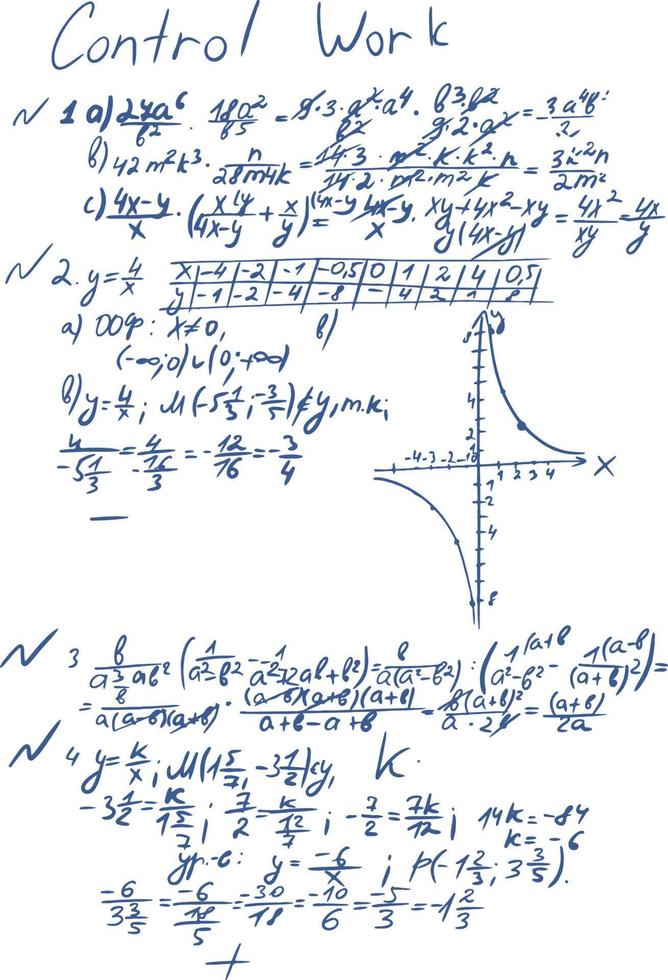 Control Work
1 a) 27a⁶/b² · 18a²/b⁵ = 9·3·a²·a⁴/b² · b³·b²/9·2·a² = 3a⁴b³/2
b) 42m²k³ · n/28m4k = 14·3·m²·k·k²·n/14·2·m²·m²k = 3k²n/2m²
c) 4x-y/x · (xy/4x-y + x/y) = 4x-y/x · xy+4x²-xy/y(4x-y) = 4x²/xy = 4x/y
2. y=4/x
x | -4 | -2 | -1 | -0,5 | 0 | 1 | 2 | 4 | 0,5
y | -1 | -2 | -4 | -8 | - | 4 | 2 | 1 | 8
a) ООФ: x≠0, в)
(-∞;0)∪(0;+∞)
в) y=4/x; M(-5 1/3; -3/5)∉y, т.к;
4/-5 1/3 = 4/-16/3 = -12/16 = -3/4
y
8
4
2
1
-4 -3 -2 -1 0 1 2 3 4 X
-1
-2
-4
-8
3 в/a³-ab² : (1/a²-b² - 1/a²+2ab+b²) = в/a(a²-b²) : (1(a+b/a²-b² - 1(a-b/(a+b)²) =
= в/a(a-b)(a+b) · (a-b)(a+b)(a+b)/a+b-a+b = b(a+b)²/a·2b = (a+b)/2a
4 y=k/x; M(1 5/7, -3 1/2)∈y, K.
-3 1/2 = k/1 5/7; 7/2 = k/12/7; -7/2 = 7k/12; 14k = -84
k = -6
ур.-е: y = -6/x; P(-1 2/3; 3 3/5).
-6/3 3/5 = -6/18/5 = -30/18 = -10/6 = -5/3 = -1 2/3
+